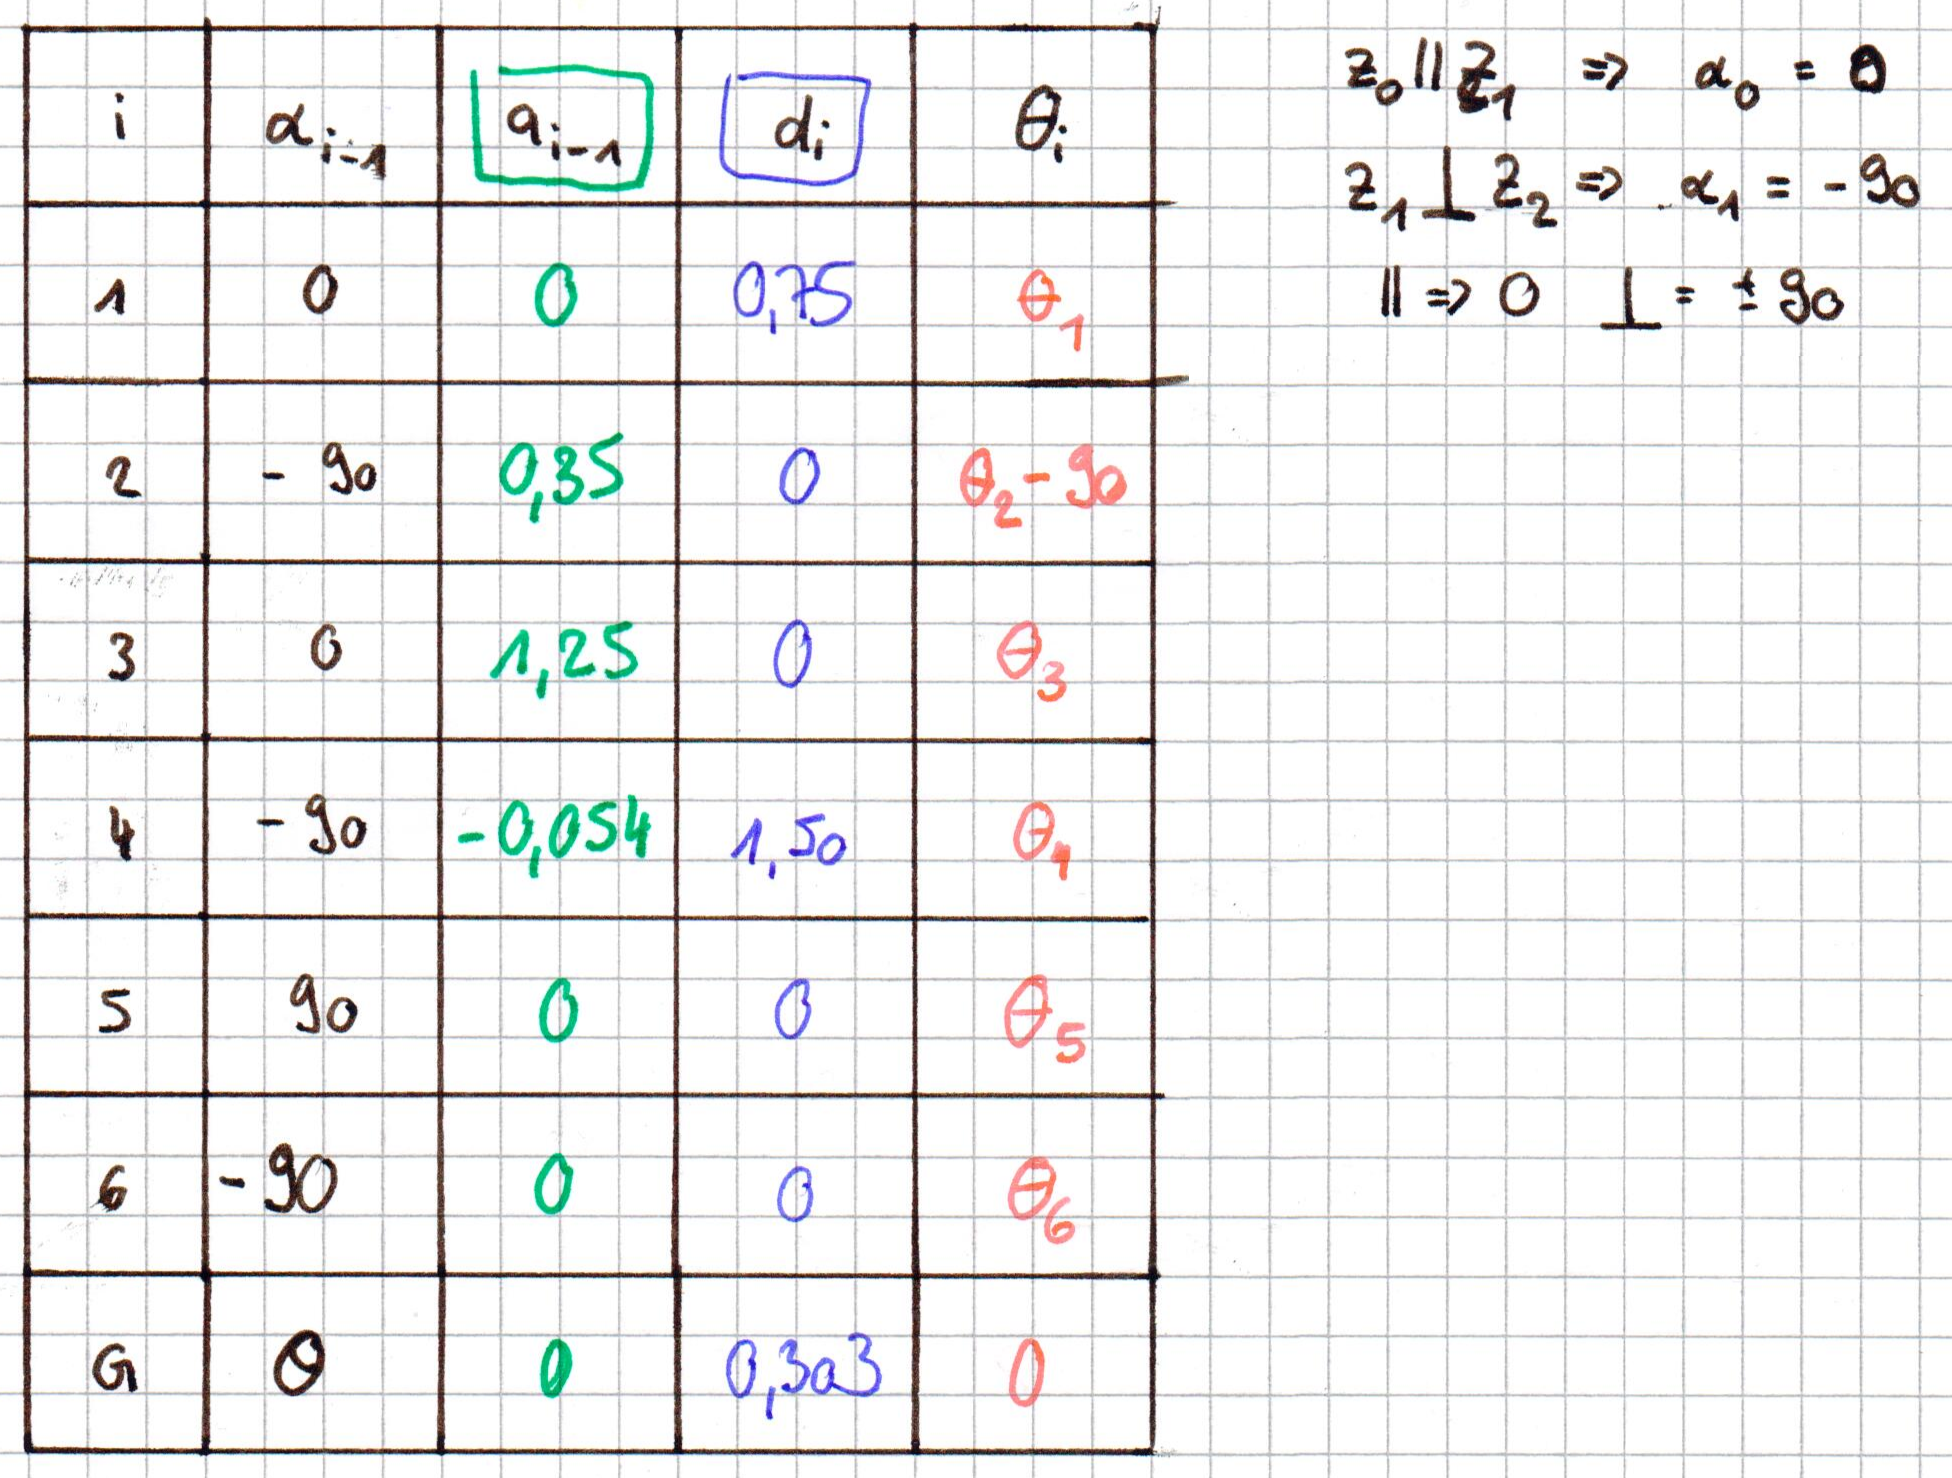 i α_{i-1} a_{i-1} d_i θ_i
1 0 0 0,75 θ_1
2 - 90 0,35 0 θ_2 - 90
3 0 1,25 0 θ_3
4 - 90 -0,054 1,50 θ_4
5 90 0 0 θ_5
6 -90 0 0 θ_6
G 0 0 0,303 0
z_0 || z_1 => α_0 = 0
z_1 ⊥ z_2 => α_1 = - 90
|| => 0 ⊥ = ± 90